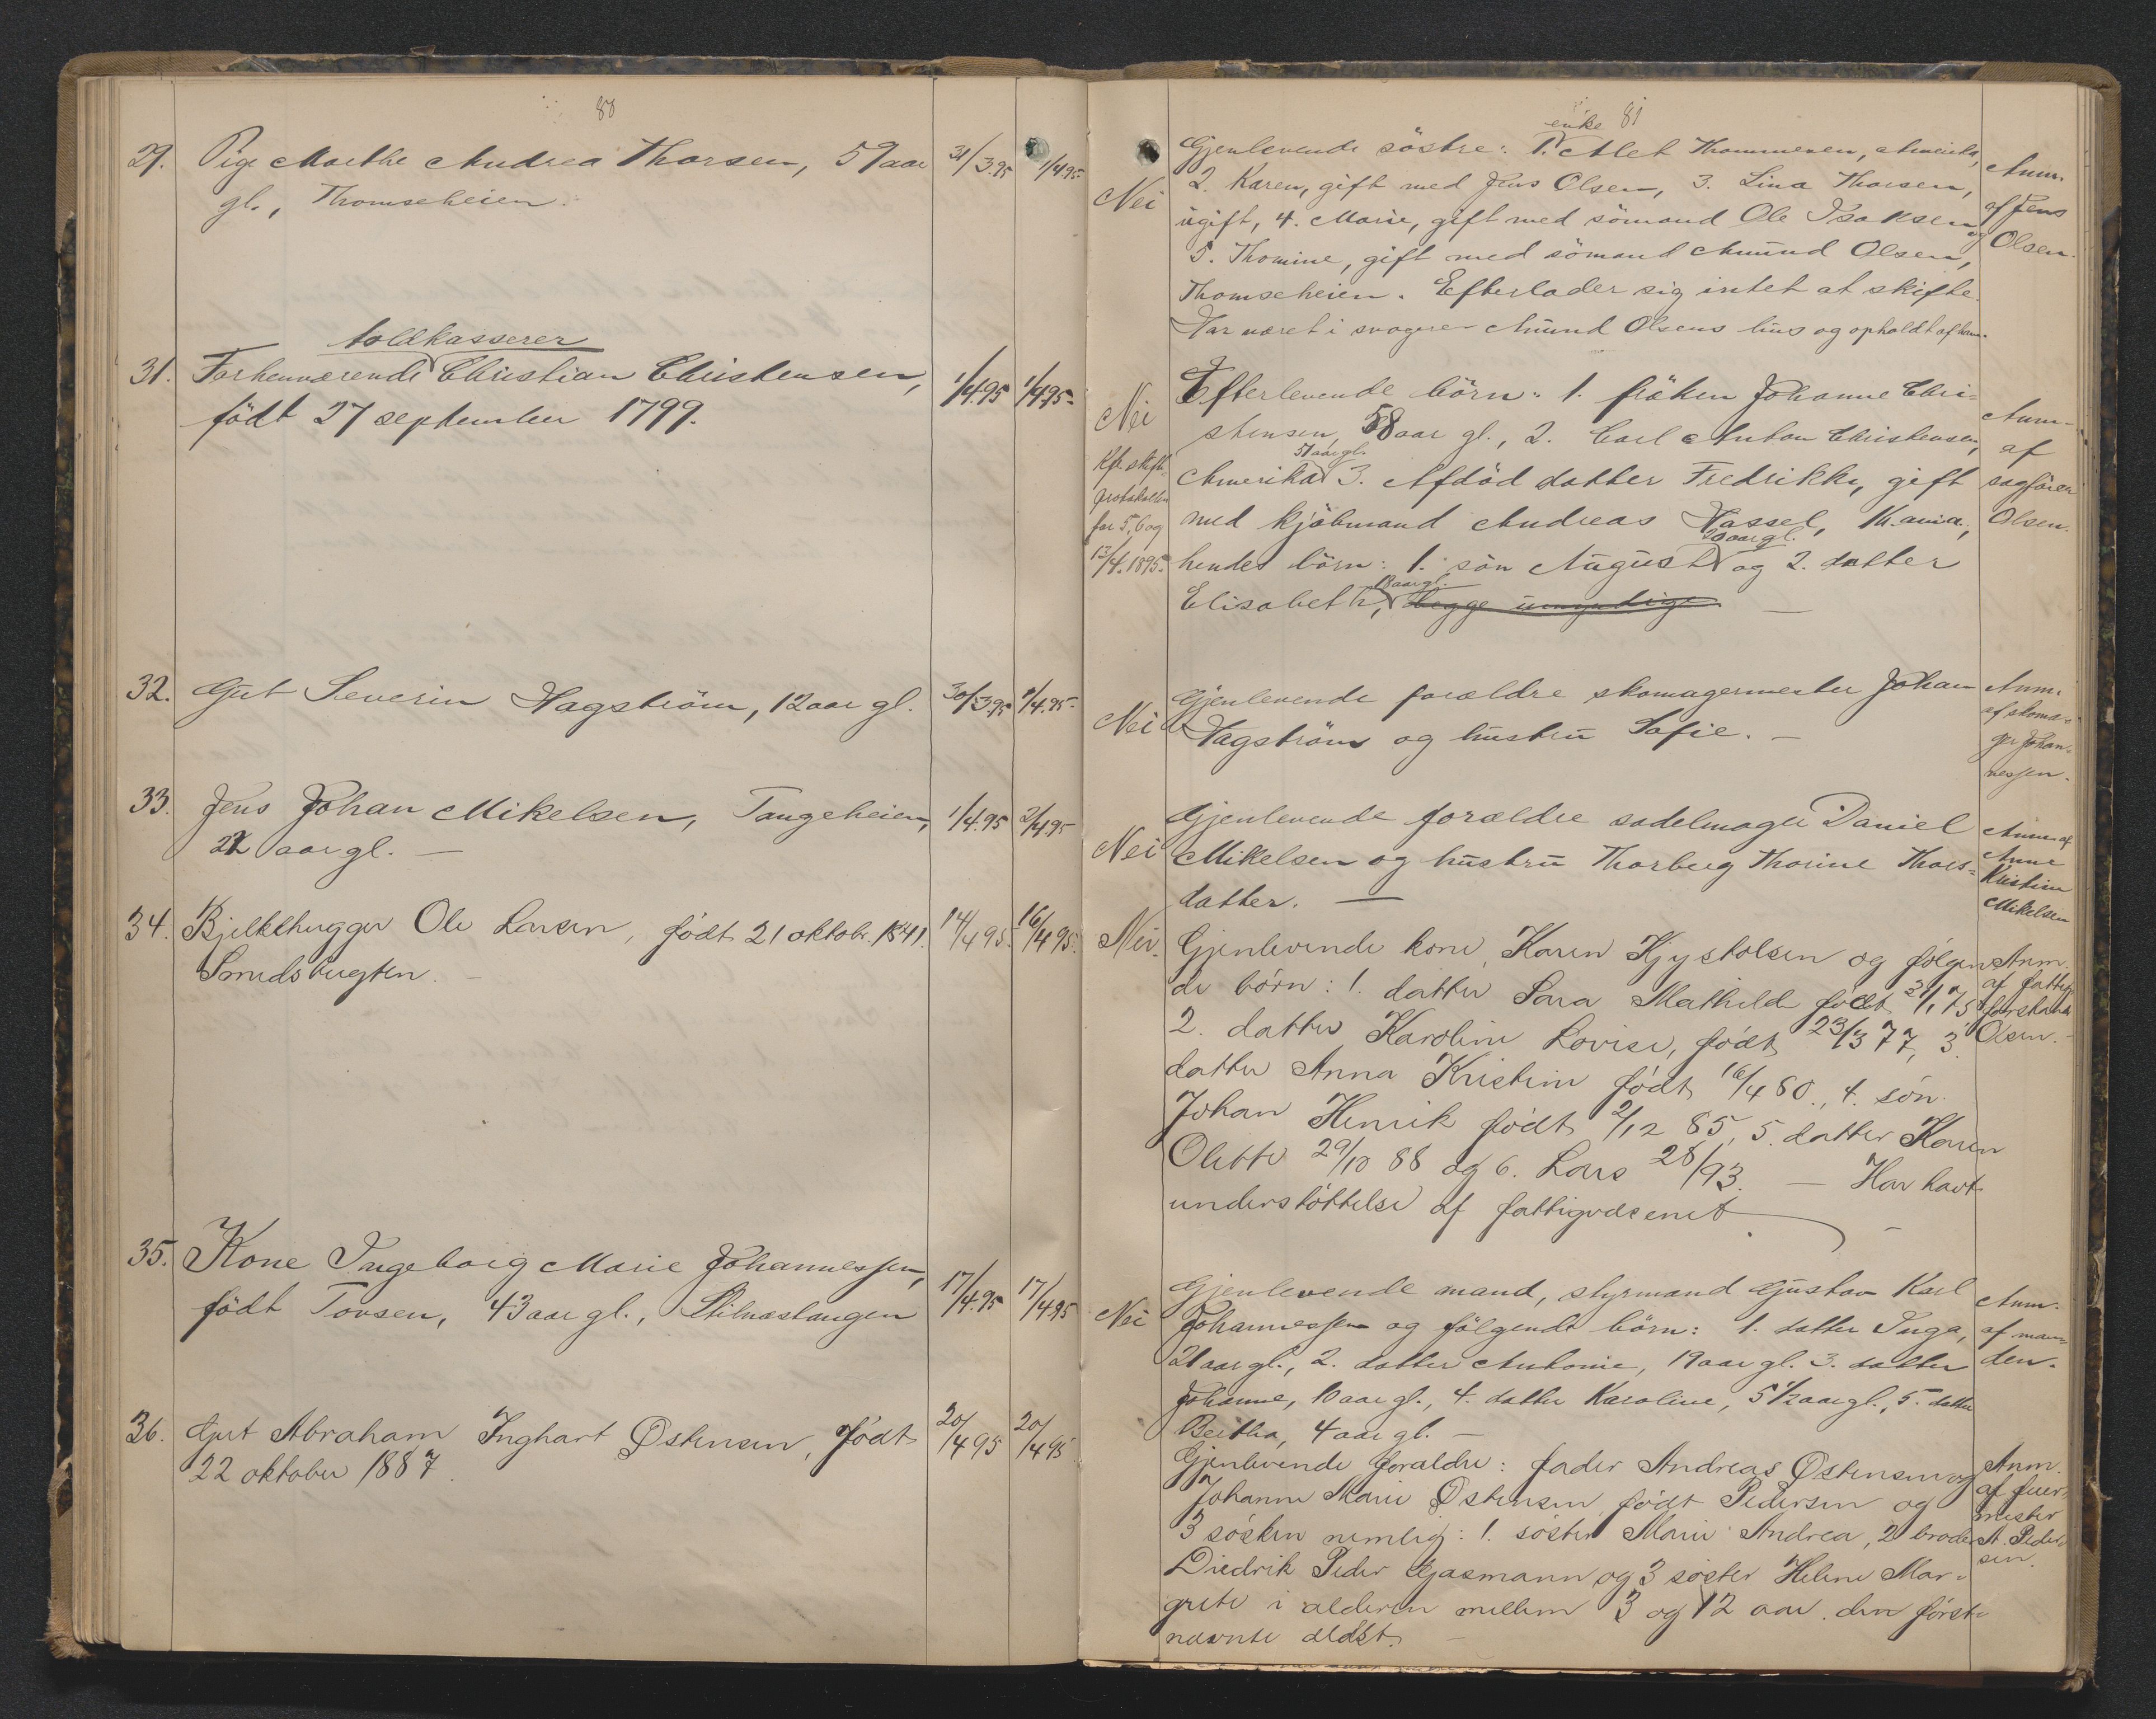 80
29. Pige Marthe Andrea Thorsen, 59 aar 31/3.95 1/4 95.
gl., Thomseheien.
toldkasserer
31. Forhenværende Christian Christensen, 1/4.95 1/4 95.
født 27 september 1799.
32. Gut Severin Hagström, 12 aar gl. 30/3.95 1/4.95.
33. Jens Johan Mikelsen, Tangeheien, 1/4.95 2/4 95
aar gl. —
34. Bjelkehugger Ole Larsen, født 21 oktob. 1841. 14/4 95. 16/4 95.
Smedsbugten. —
35. Kone Ingeborg Marie Johannessen, 17/4.95 17/4 95
født Tovsen, 43 aar gl., Stilnæstangen
36. Gut Abraham Inghart Østensen, født 20/4 95 20/4 95
22 oktober 1887.
81
enke
Gjenlevende söstre: 1. Alet Thommesen, Amerika, Anm.
Nei 2. Karen, gift med Jens Olsen, 3. Lina Thorsen, af Jens
ugift, 4. Marie, gift med sömand Ole Isaksen og Olsen.
5. Thomine, gift med sömand Amund Olsen,
Thomseheien. Efterlader sig intet at skifte.
Har været i svogeren Amund Olsens hus og opholdt af ham.
Nei Efterlevende börn: 1. fröken Johanne Chri- Anm.
stensen, 58 aar gl., 2. Carl Anton Christensen, af
57 aar gl.
Kfr. skifte- Amerika 3. Afdöd datter Fredrikke, gift sagförer
protokollen med kjöbmand Andreas Hassel, Kr.ania, Olsen.
for 5, 6 og
aar gl.
13/4.1895. hendes börn: 1. sön August og 2. datter
18 aar gl.
Elisabeth, begge umyndige —
Gjenlevende forældre skomagermester Johan Anm.
af skoma-
Nei Hagström og hustru Sofie. — ger Johan-
nessen.
Gjenlevende forældre sadelmager Daniel Anm. af
Nei Mikelsen og hustru Thorberg Thorine Thors- Anne
Kristine
datter. — Mikelsen
Nei. Gjenlevende kone, Karen Kjystolsen og følgen- Anm.
de børn: 1. datter Sara Mathilde født 21/1 75 af fattig-
forstander
2. datter Karoline Lovise, født 23/3 77, 3. Olsen.
datter Anna Kristine født 16/4 80., 4. søn
Johan Henrik født 2/12 85, 5. datter Karen
Olette 29/10 88 og 6. Lars 28/93. — Har havt
understøttelse af fattigvæsenet —
Gjenlevende mand, styrmand Gustav Karl Anm.
Nei Johannessen og fölgende börn: 1. datter Inga, af man-
21 aar gl., 2. datter Antonie, 19 aar gl. 3. datter den.
Johanne, 10 aar gl., 4. datter Karoline, 5 1/2 aar gl., 5. datter
Bertha, 4 aar gl. —
Gjenlevende forældre: fader Andreas Østensen og Anm.
Johanne Marie Østensen, født Pedersen og af fuer-
mester
3 søsken nemlig: 1. søster Marie Andrea, 2 broder A. Peder-
sen.
Diedrik Peder Gjasmann og 3 søster Helene Mar-
grete i alderen mellem 3 og 12 aar. den først-
nævnte ældst. —